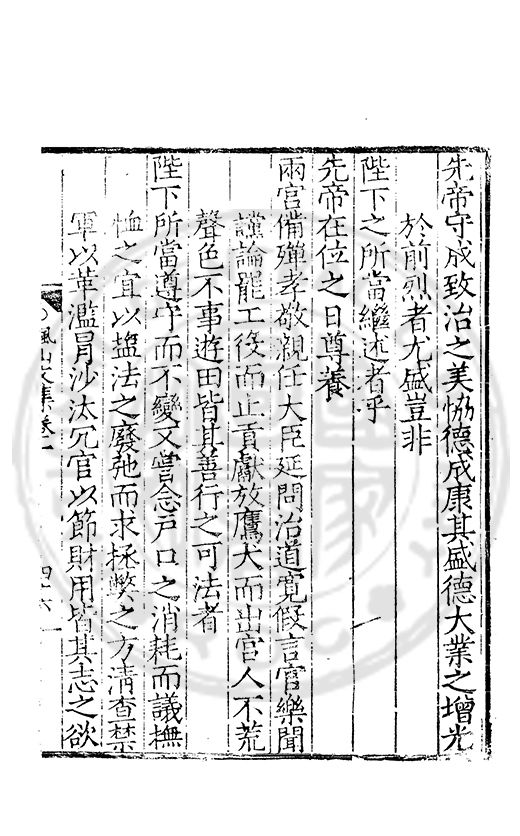 先帝守成致治之美恊德成康其盛德大業之增光
於前烈者尤盛豈非
陛下之所當繼述者乎
先帝在位之日尊養
兩宫備殫孝敬親任大臣延問治道寛假言官樂聞
讜論罷工役而止貢獻放鷹犬而出宫人不荒
聲色不事遊田皆其善行之可法者
陛下所當遵守而不變又嘗念戸口之消耗而議撫
恤之宜以盐法之廢弛而求拯弊之方清查禁
軍以革濫冒沙汰冗官以節財用皆其志之欲
楓山文集卷二
四十六